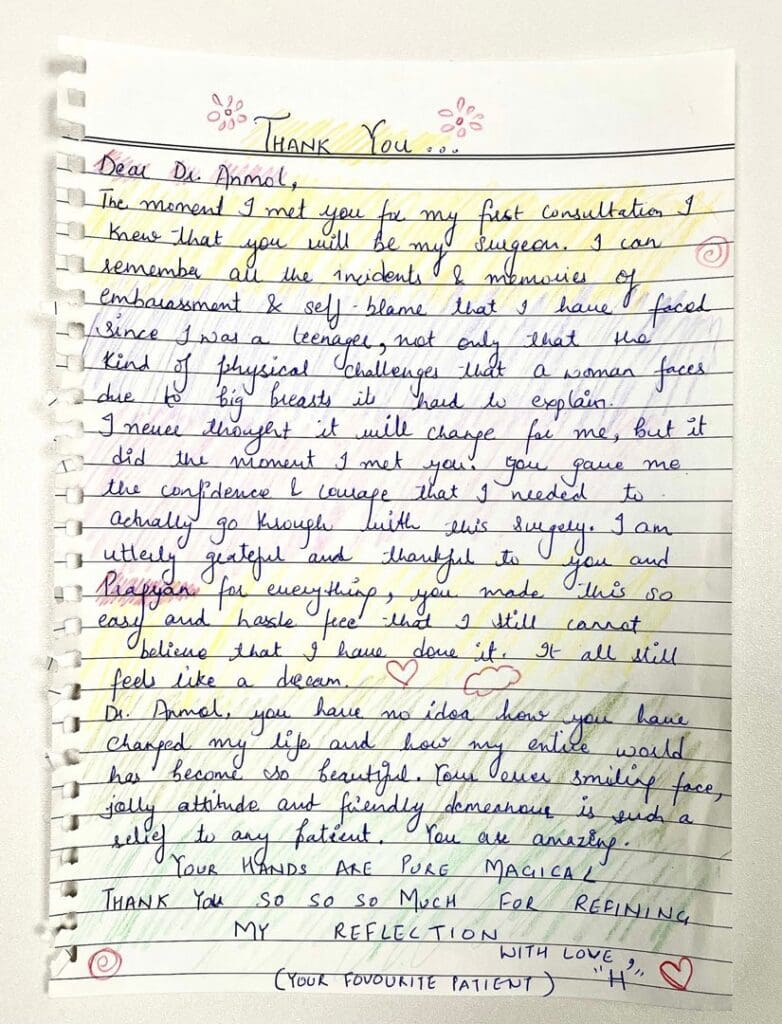 THANK YOU...
Dear Dr. Anmol,
The moment I met you for my first consultation I
knew that you will be my surgeon. I can
remember all the incidents & memories of
embarassment & self-blame that I have faced
since I was a teenager, not only that the
kind of physical challenges that a woman faces
due to big breasts is hard to explain.
I never thought it will change for me, but it
did the moment I met you. You gave me
the confidence & courage that I needed to
actually go through with this surgery. I am
utterly grateful and thankful to you and
Pragyan for everything, you made this so
easy and hassle free that I still cannot
believe that I have done it. It all still
feels like a dream.
Dr. Anmol, you have no idea how you have
changed my life and how my entire world
has become so beautiful. Your ever smiling face,
jolly attitude and friendly demeanour is such a
relief to any patient. You are amazing.
YOUR HANDS ARE PURE MAGICAL
THANK YOU SO SO SO MUCH FOR REFINING
MY REFLECTION
WITH LOVE,
"H"
(YOUR FOVOURITE PATIENT)